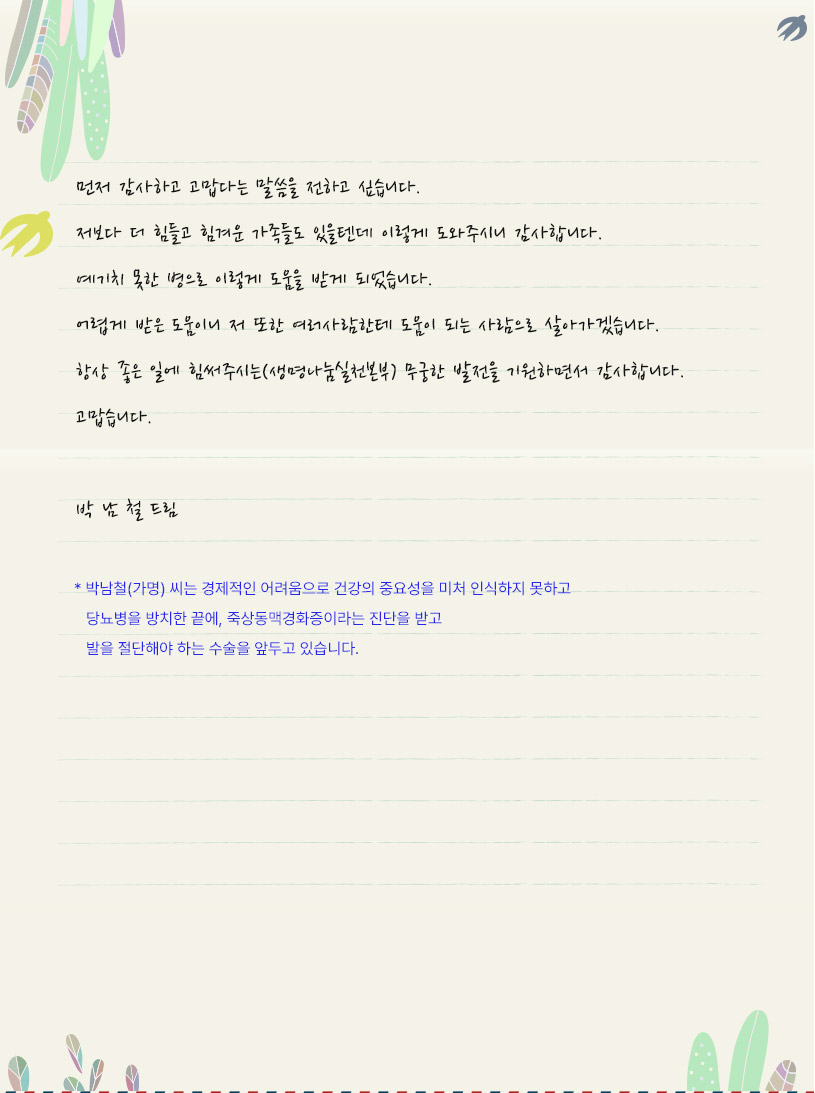 먼저 감사하고 고맙다는 말씀을 전하고 싶습니다.
저보다 더 힘들고 힘겨운 가족들도 있을텐데 이렇게 도와주시니 감사합니다.
예기치 못한 병으로 이렇게 도움을 받게 되었습니다.
어렵게 받은 도움이니 저 또한 여러사람한테 도움이 되는 사람으로 살아가겠습니다.
항상 좋은 일에 힘써주시는(생명나눔실천본부) 무궁한 발전을 기원하면서 감사합니다.
고맙습니다.
박 남 철 드림
* 박남철(가명) 씨는 경제적인 어려움으로 건강의 중요성을 미처 인식하지 못하고
당뇨병을 방치한 끝에, 죽상동맥경화증이라는 진단을 받고
발을 절단해야 하는 수술을 앞두고 있습니다.